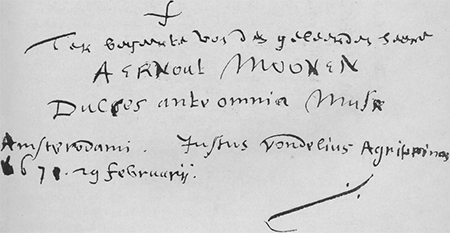 Ter begeerte van den geleerden heere
AERNOUT MOONEN
Dulces ante omnia Musæ
Amsterodami. Justus Vondelius Agrippinas
1671. 29 Februarij.